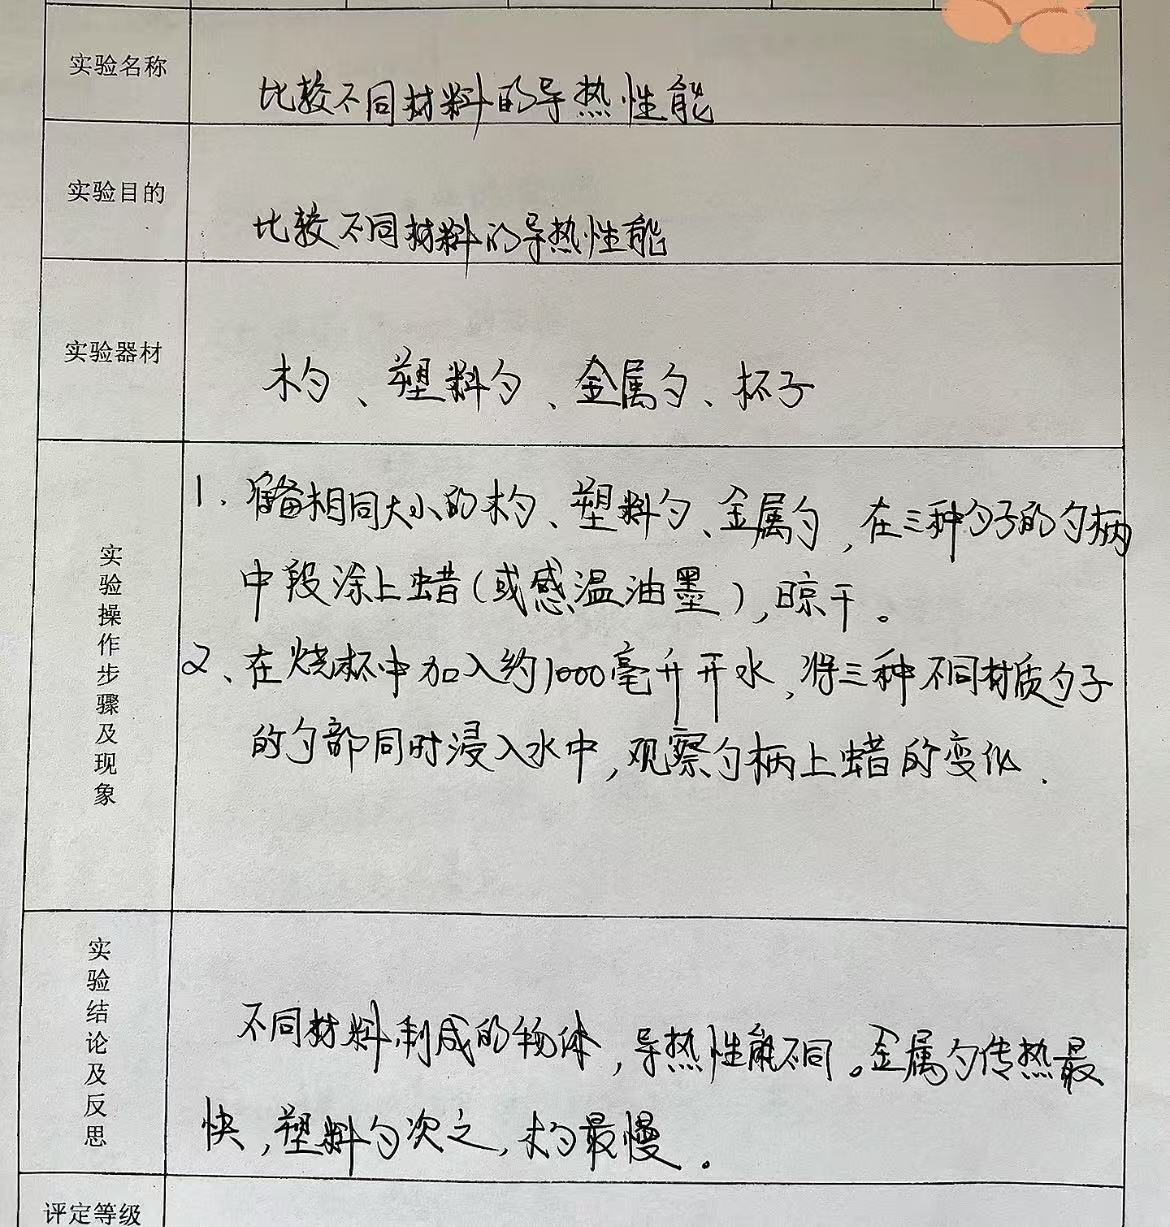 实验名称
比较不同材料的导热性能
实验目的
比较不同材料的导热性能
实验器材
木勺、塑料勺、金属勺、杯子
实验操作步骤及现象
1、准备相同大小的木勺、塑料勺、金属勺，在三种勺子的勺柄
中段涂上蜡(或感温油墨)，晾干。
2、在烧杯中加入约1000毫升开水，将三种不同材质勺子
的勺部同时浸入水中，观察勺柄上蜡的变化.
实验结论及反思
不同材料制成的物体，导热性能不同。金属勺传热最
快，塑料勺次之，木勺最慢。
评定等级